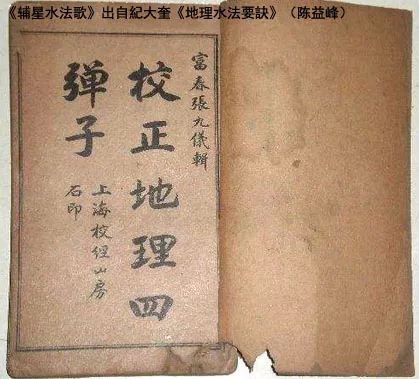 《辅星水法歌》出自紀大奎《地理水法要訣》（陈益峰）
富春張九儀輯
校正地理四
弹子
上海校經山房
石印